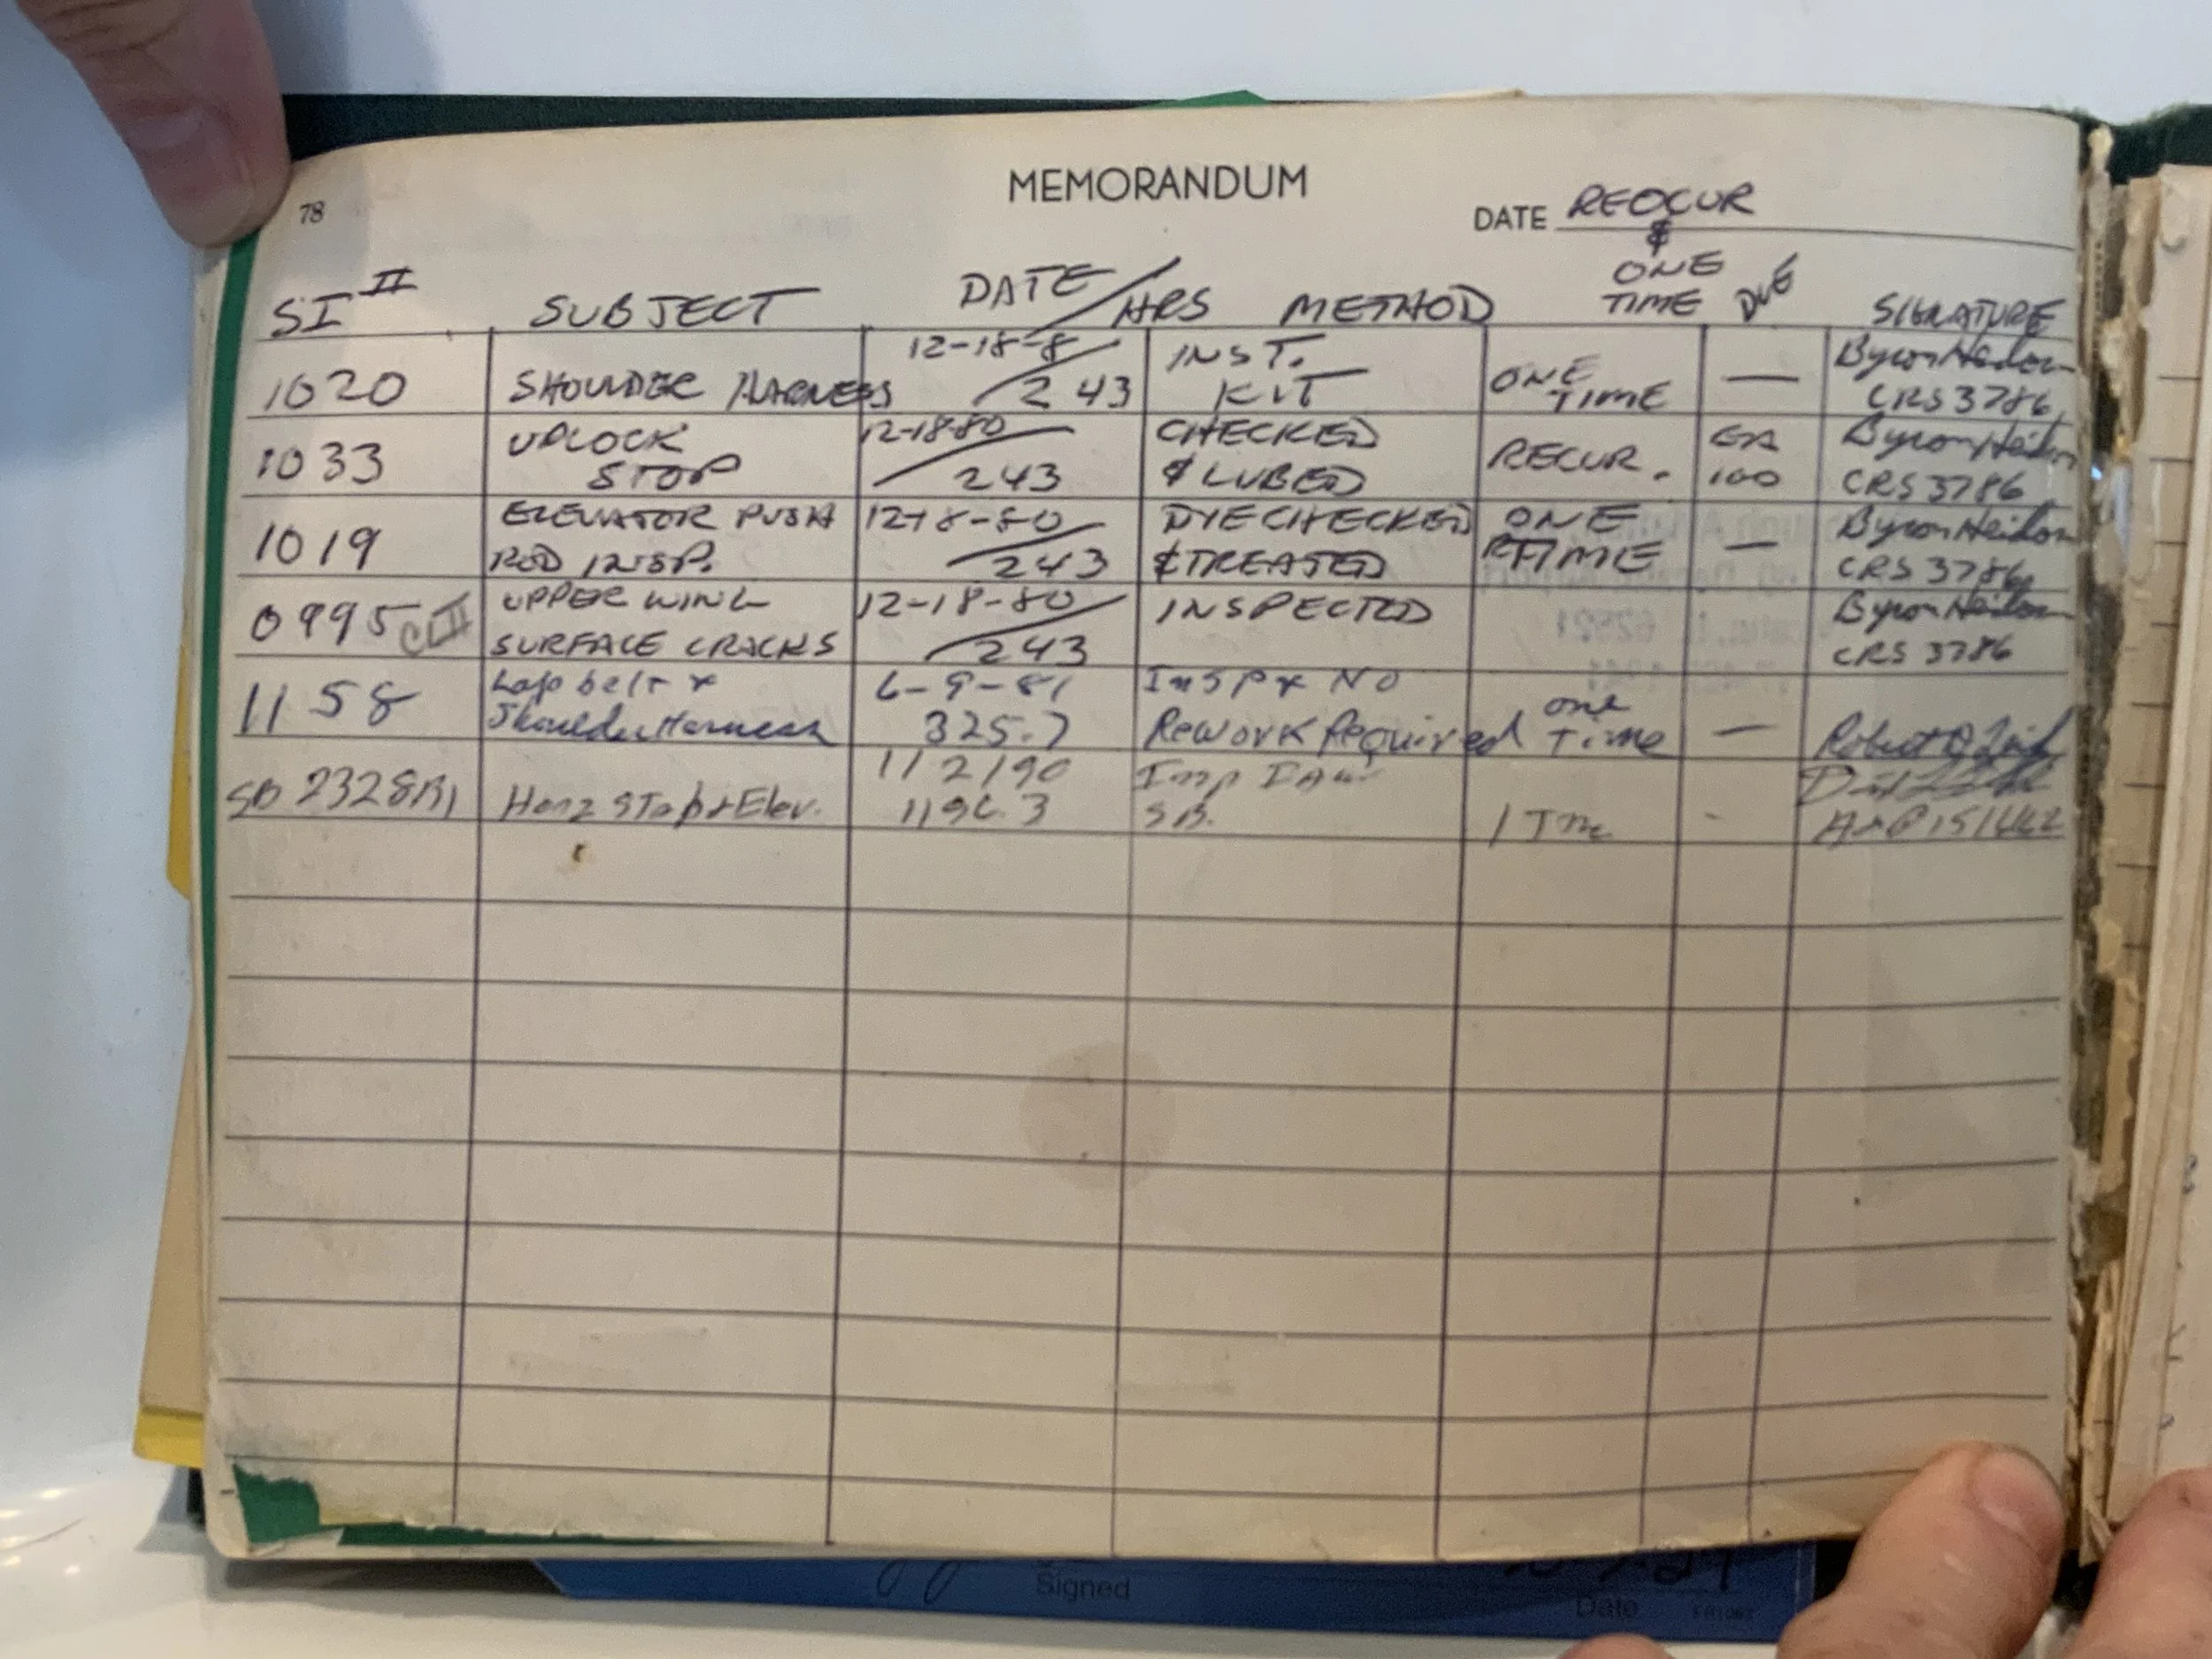 78
MEMORANDUM
DATE REOCUR
&
ONE
TIME
SI II SUBJECT DATE/HRS METHOD DUE SIGNATURE
1020 SHOULDER HARNESS 12-18-8 / 243 INST. KIT ONE TIME — Byron
CRS 3786
1033 UPLOCK STOP 12-18-80 / 243 CHECKED & LUBED RECUR. EA 100 Byron
CRS 3786
1019 ELEVATOR PUSH ROD INSP. 12-18-80 / 243 DYECHECKED & TREATED ONE TIME — Byron
CRS 3786
0995 CL II UPPER WING SURFACE CRACKS 12-18-80 / 243 INSPECTED Byron
CRS 3786
1158 Lap belt & Shoulder Harness 6-9-81 325.7 Insp & No Rework Required one Time — Robert
SB 2328R1 Horz Stab & Elev. 1/2/90 1196.3 Insp IAW S.B. 1 Time -
Signed
Date